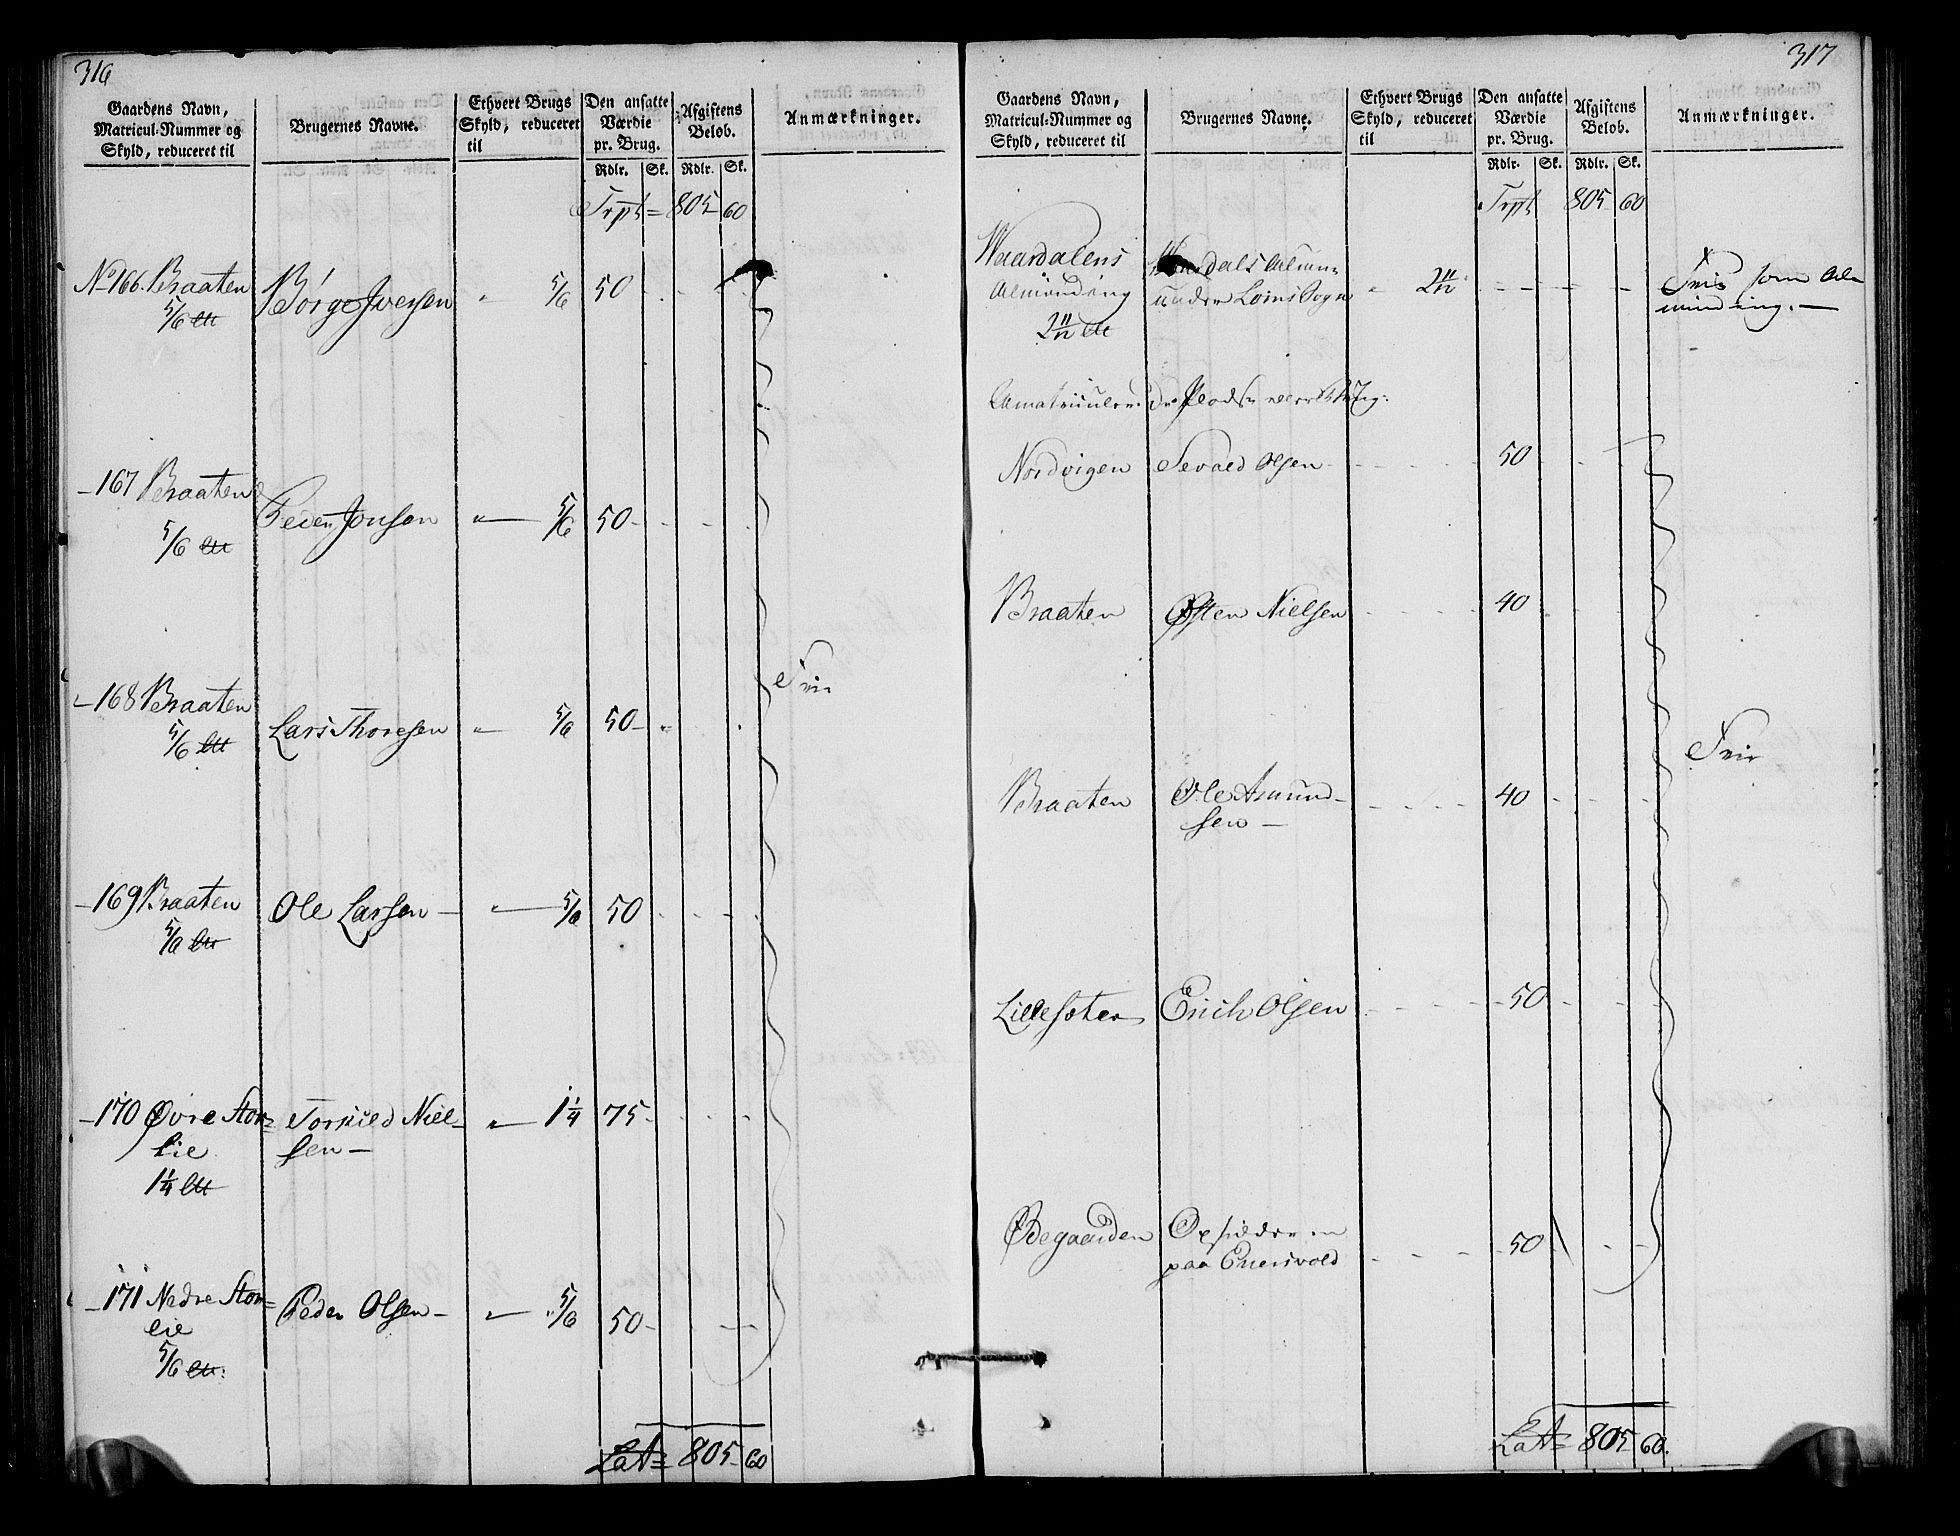 316
Gaardens Navn,
Matricul-Nummer og
Skyld, reduceret til
Brugernes Navne.
Ethvert Brugs
Skyld, reduceret
til
Den ansatte
Værdie
pr. Brug.
Afgiftens
Beløb.
Anmærkninger.
Rdlr. Sk. Rdlr. Sk.
Trpt = 805 60
No 166. Braaten Børge Iversen " 5/6 50 - - -
5/6
- 167 Braaten Peder Jonsen " 5/6 50 - - -
5/6
- 168 Braaten Lars Thoresen " 5/6 50 - - -
5/6
Frie
- 169 Braaten Ole Larsen - " 5/6 50 - - -
5/6
- 170 Øvre Stor= Torkild Niel= " 1 1/4 75 - - -
lie sen -
1 1/4
- 171 Nedre Stor= Peder Olsen - " 5/6 50 - - -
lie
5/6
Lat = 805 60
317
Gaardens Navn,
Matricul-Nummer og
Skyld, reduceret til
Brugernes Navne.
Ethvert Brugs
Skyld, reduceret
til
Den ansatte
Værdie
pr. Brug.
Afgiftens
Beløb.
Anmærkninger.
Rdlr. Sk. Rdlr. Sk.
Trpt 805 60
Waardalens
Alminding under Loms Sogn " 2 11/12 - - - - Frie som Al=
2 11/12 minding. -
Nordvigen Sevald Olsen - 50 - - -
Braaten Østen Nielsen 40 - - -
Braaten Ole Asmund- 40 - - -
sen -
Frie
Lillesæter Erich Olsen 50 - - -
Ødegaarden Opsidderen 50 - - -
paa
Lat = 805 60.